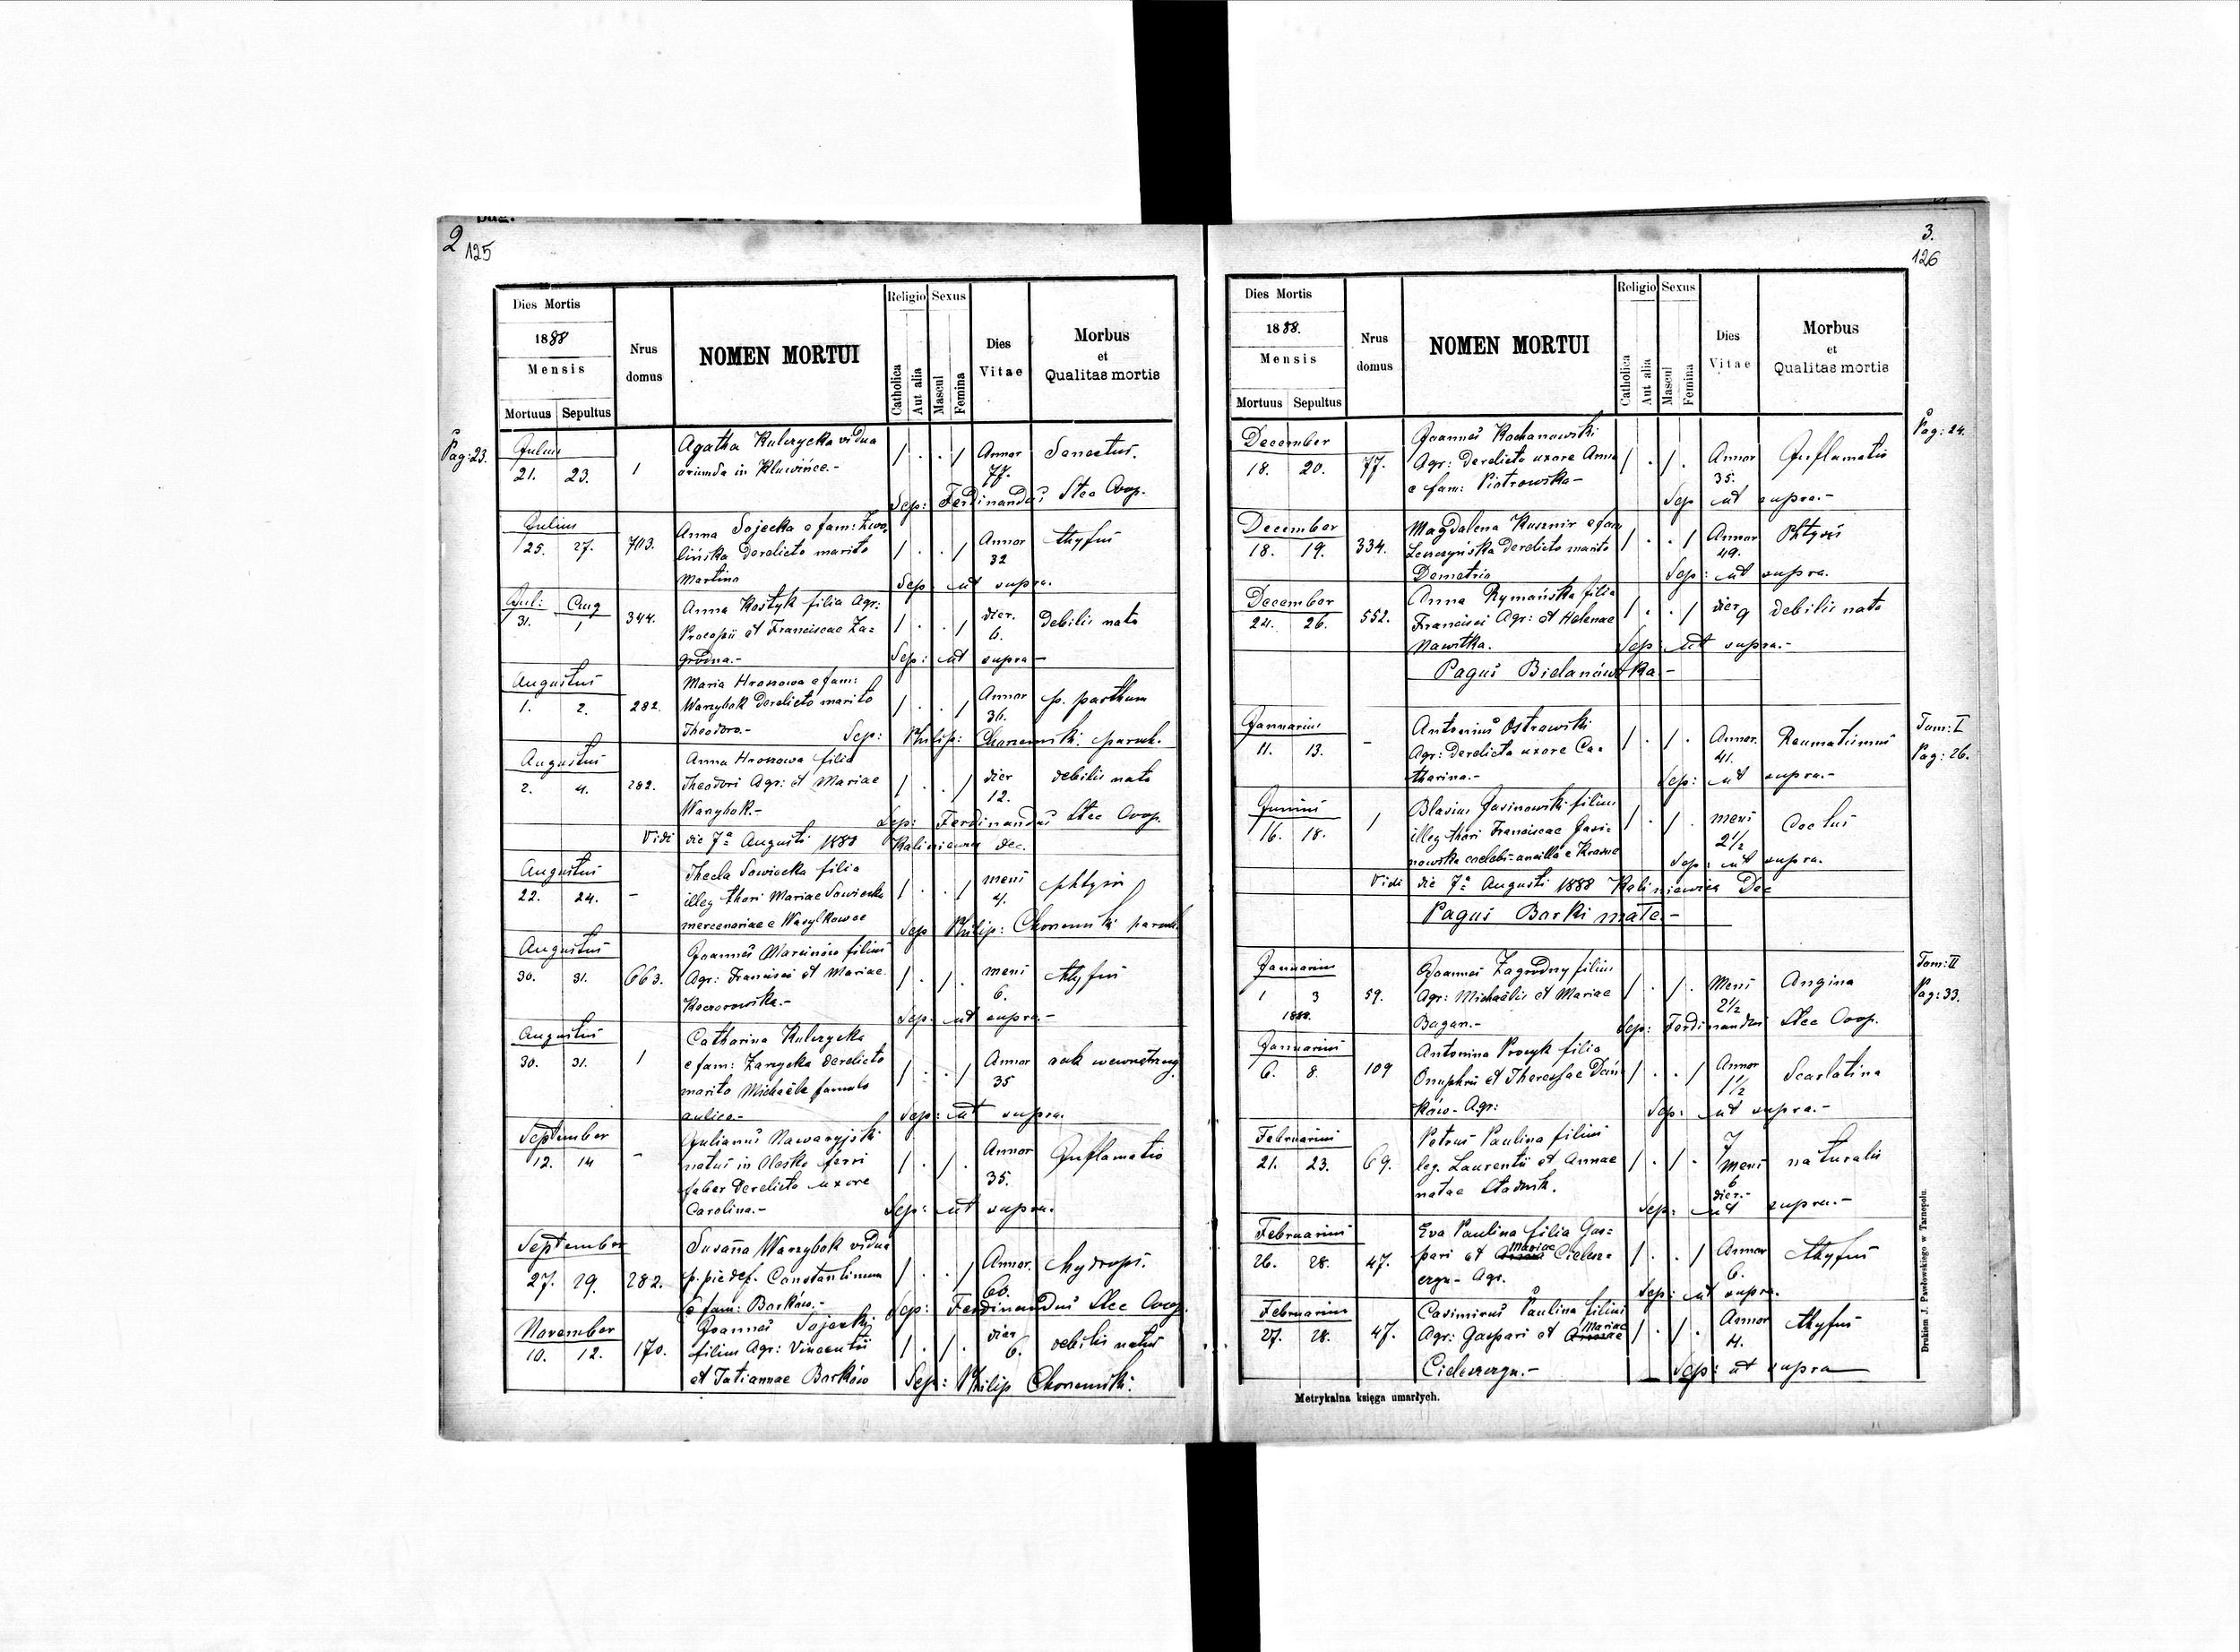 2 125
Dies Mortis
1888
Mensis
Mortuus Sepultus
Nrus domus
NOMEN MORTUI
Religio Sexus
Catholica Aut alia Mascul Femina
Dies Vitae
Morbus et Qualitas mortis
Pag: 23.
Julius
21. 23. 1
Agatha Kulczycka vidua
oriunda in Kluwińce.-
/ . . / Annor 77. Senectus.
Sep: Ferdinandus Stec Coop.
Julius
25. 27. 703.
Anna Sojecka e fam: Zwo-
lińska derelicto marito
Martino
/ . . / Annor 32 thyfus
Sep ut supra.
Jul: Aug
31. 1 344.
Anna Kostyk filia Agr:
Procopii et Franciscae Za=
grodna.-
/ . . / dier. 6. Debilis nata
Sep: ut supra-
Augustus
1. 2. 282.
Maria Hrossowa e fam:
Warzybok derelicto marito
Theodoro.-
/ . . / Annor 36. p. parthum
Sep: Philip: paroch.
Augustus
2. 4. 282.
Anna Hrossowa filia
Theodori Agr: et Mariae
Warzybok.-
/ . . / dier 12. debilis nata
Sep: Ferdinandus Stec Coop.
Vidi die 7ª Augusti 1888 Kaliniewicz dec.
Augustus
22. 24. -
Thecla Sawicka filia
illeg thori Mariae Sawicka
mercenariae e Wasylkowce
/ . . / mens 4. phtysis
Sep Philip: paroch.
Augustus
30. 31. 663.
Joannes Marcinów filius
Agr: Francisci et Mariae
/ . / . mens 6. thyfus
Sep. ut supra.-
Augustus
30. 31. 1
Catharina Kulczycka
e fam: Zarzycka derelicto
marito Michaële famulo
aulico-
/ . . / Annor 35 rak wewnętrzny
Sep: ut supra.
September
12. 14 -
Julianus Nawaryjski
natus in Olesko ferri
faber derelicta uxore
Carolina.-
/ . / . Annor 35. Inflamatio
Sep: ut supra.
September
27. 29. 282.
Susana Warzybok vidua
p. pie def. Constantinum
e fam: Barków.-
/ . . / Annor. 60. hydrops.
Sep: Ferdinandus Stec Coop.
November
10. 12. 170.
Joannes Sojecki
filius Agr: Vincentii
et Tatiannae Barków
/ . / . dier 6. debilis natus
Sep: Philip
3.
126
Dies Mortis
1888.
Mensis
Mortuus Sepultus
Nrus domus
NOMEN MORTUI
Religio Sexus
Catholica Aut alia Mascul Femina
Dies Vitae
Morbus et Qualitas mortis
Pag: 24.
December
18. 20. 77.
Joannes Kochanowski
Agr: derelicta uxore Anna
e fam: Piotrowska-
/ . / . Annor 35. Inflamatio
Sep ut supra.-
December
18. 19. 334.
Magdalena Kusznir e fam
derelicto marito
Demetrio
/ . . / Annor 49. Phtysis
Sep: ut supra.
December
24. 26. 552.
Anna Rymańska filia
Francisci Agr: et Helenae
Nawitka.
/ . . / dier 9 debilis nata
Sep: ut supra.-
Pagus Bielanówka.-
Tom: I
Pag: 26.
Januarius
11. 13. -
Antonius Ostrowski
Agr: derelicta uxore Ca-
tharina.-
/ . / . Annor. 41. Reumatismus
Sep: ut supra.-
Junius
16. 18. 1
Blasius Jasinowski filius
illeg thori Franciscae Jasi=
nowska caelebs-ancilla e Krasne
/ . / . mens 2½ Coclus
Sep: ut supra.
Vidi die 7ª Augusti 1888 Kaliniewicz Dec
Pagus Borki małe-
Tom: II
Pag: 33.
Januarius
1 3 59.
1888.
Joannes Zagrodny filius
Agr: Michaëlis et Mariae
Bagan.-
/ . / . Mens 2½ Angina
Sep: Ferdinandus Stec Coop.
Januarius
6. 8. 109
Antonina Procyk filia
Onuphrii et Theresiae Dań-
ków- Agr:
/ . . / Annor 1½ Scarlatina
Sep: ut supra.-
Februarius
21. 23. 69.
Petrus Paulina filius
leg. Laurentii et Annae
natae
/ . / . 7 mens 6 dier.- naturalis
Sep: ut supra.-
Februarius
26. 28. 47.
Eva Paulina filia Gas=
pari et Mariae Cielesz=
ergu- Agr.
/ . . / Annor 6. thyfus
Sep: ut supra.
Februarius
27. 28. 47.
Casimirus Paulina filius
Agr: Gaspari et Mariae
/ . / . Annor 4. thyfus
Sep: ut supra
Metrykalna księga umarłych.
Drukiem J. Pawłowskiego w Tarnopolu.